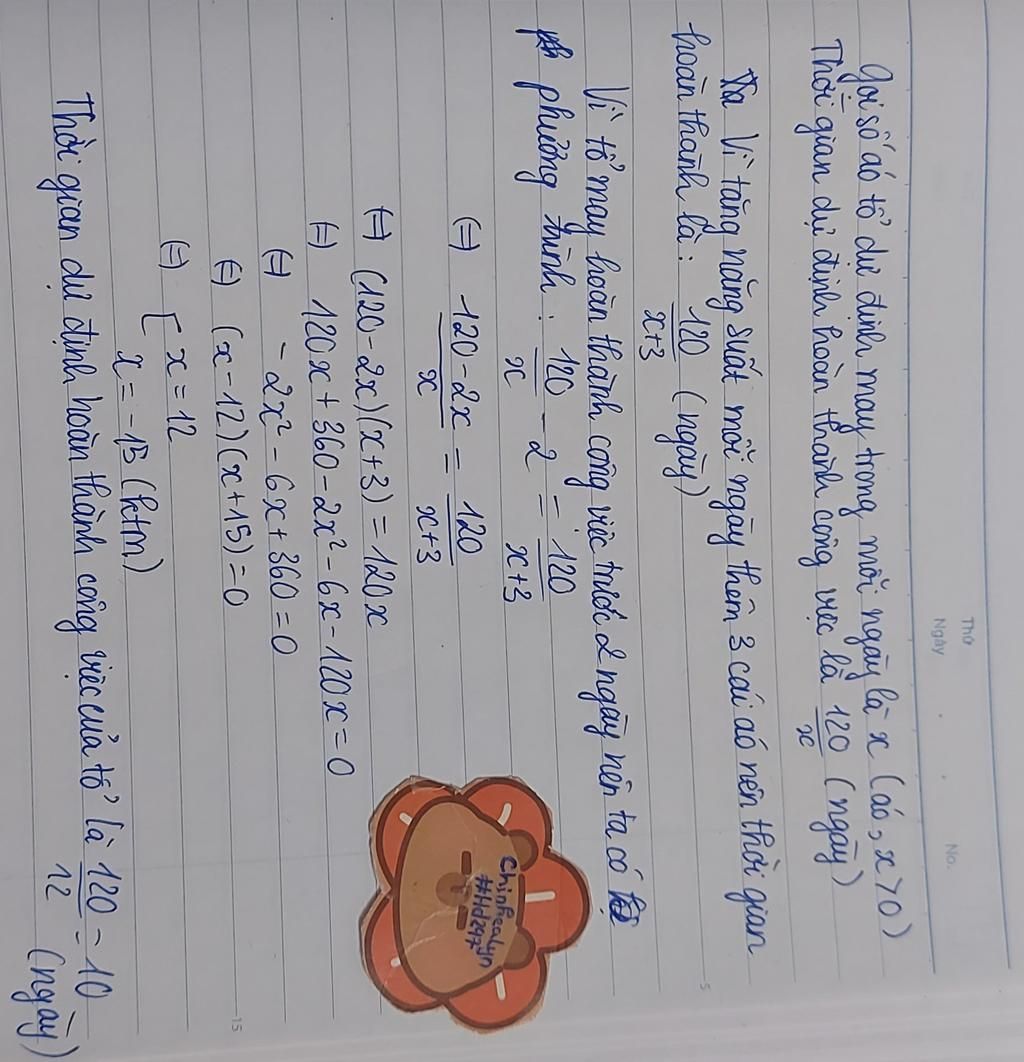 Thứ
Ngày
No.
Gọi số áo tổ dự định may trong mỗi ngày là x (áo, x > 0)
Thời gian dự định hoàn thành công việc là 120/x (ngày)
Vì tăng năng suất mỗi ngày thêm 3 cái áo nên thời gian
hoàn thành là: 120/x+3 (ngày)
5
Vì tổ may hoàn thành công việc trước 2 ngày nên ta có
phương trình: 120/x - 2 = 120/x+3
(=) 120-2x/x = 120/x+3
(=) (120-2x)(x+3) = 120x
(=) 120x + 360 - 2x² - 6x - 120x = 0
(=) -2x² - 6x + 360 = 0
(=) (x-12)(x+15) = 0
(=) [ x = 12
x = -15 (ktm)
15
Thời gian dự định hoàn thành công việc của tổ là 120/12 = 10
(ngày)
chinhealyn
##Hd297